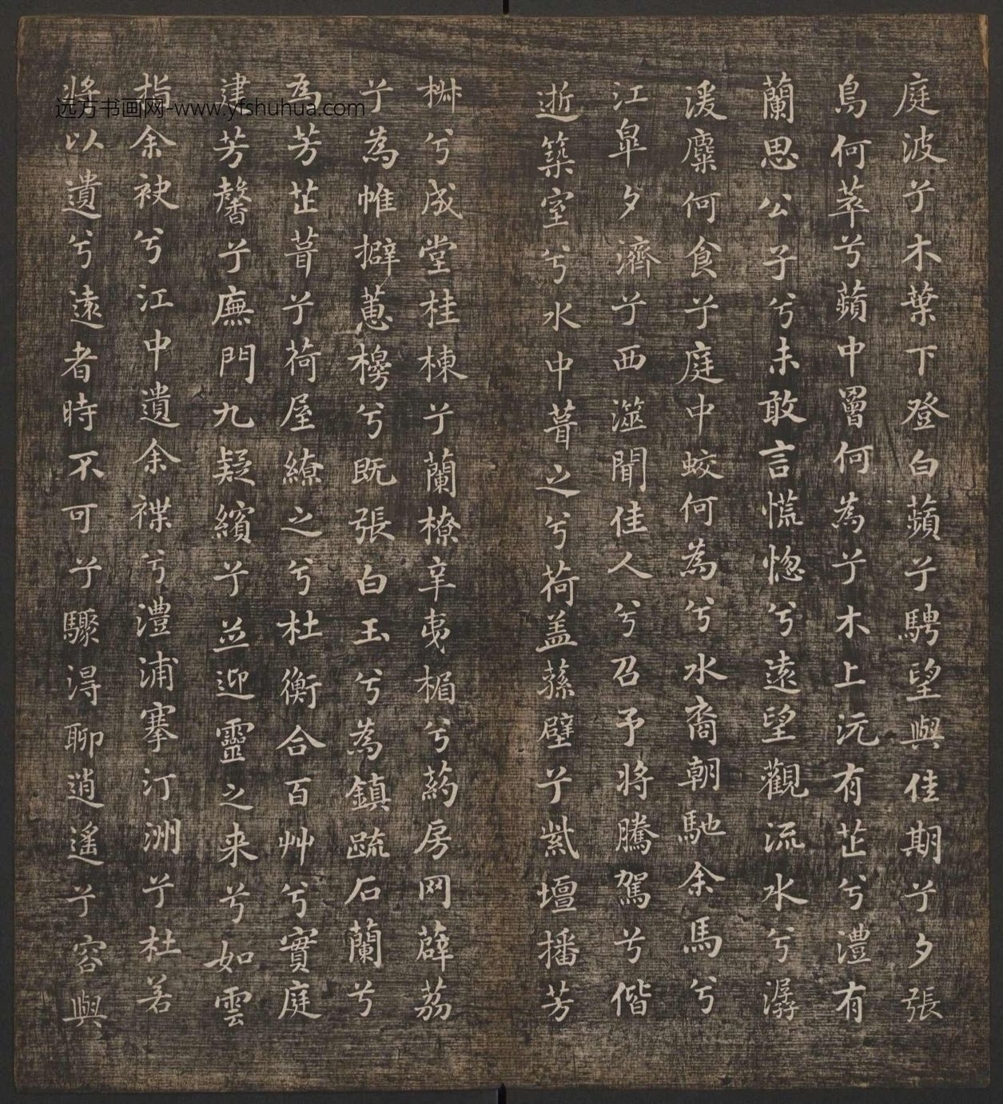 庭波兮木葉下登白蘋兮騁望與佳期兮夕張
鳥何萃兮蘋中罾何為兮木上沅有芷兮澧有
蘭思公子兮未敢言慌惚兮遠望觀流水兮潺
湲麋何食兮庭中蛟何為兮水裔朝馳余馬兮
江皐夕濟兮西澨聞佳人兮召予將騰駕兮偕
逝築室兮水中葺之兮荷盖蓀壁兮紫壇播芳
椒兮成堂桂棟兮蘭橑辛夷楣兮葯房网薜荔
兮為帷擗蕙櫋兮既張白玉兮為鎮疏石蘭兮
為芳芷葺兮荷屋繚之兮杜衡合百艸兮實庭
建芳馨兮廡門九疑繽兮並迎靈之来兮如雲
指余袂兮江中遺余褋兮澧浦搴汀洲兮杜若
將以遺兮遠者時不可兮驟得聊逍遙兮容與
远方书画网-www.yfshuhua.com